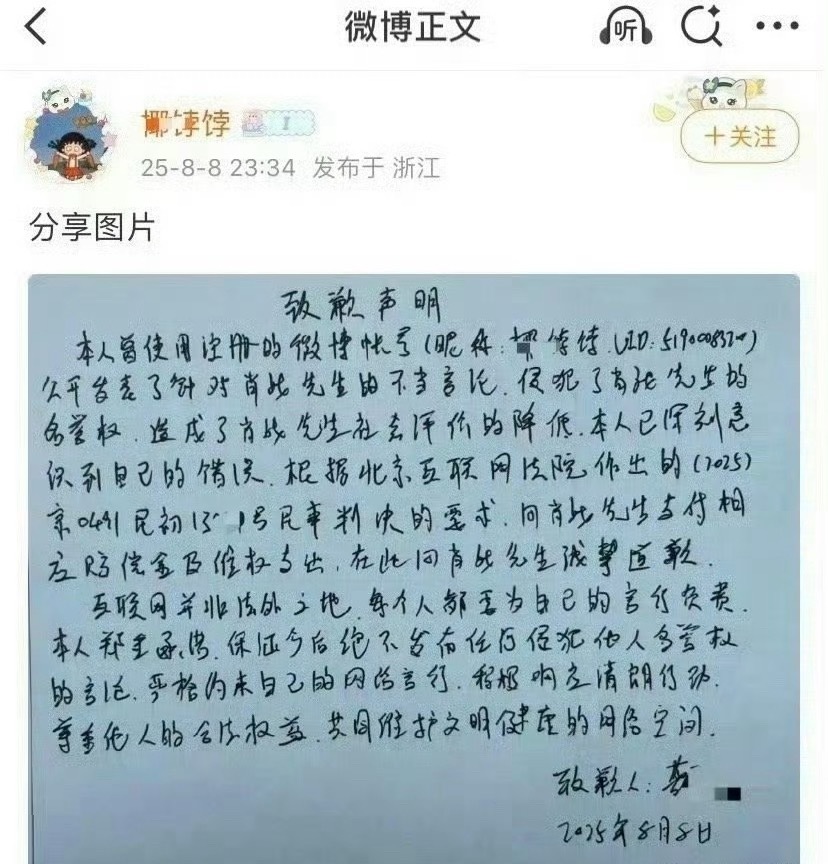 微博正文
听
饽饽
+关注
25-8-8 23:34 发布于 浙江
分享图片
致歉声明
本人曾使用注册的微博帐号(昵称: 饽饽 UID:
公开发表了针对肖战先生的不当言论,侵犯了肖战先生的
名誉权,造成了肖战先生社会评价的降低.本人已深刻意
识到自己的错误.根据北京互联网法院作出的(2025)
京0491民初 号民事判决的要求,向肖战先生支付相
应赔偿金及维权支出,在此向肖战先生诚挚道歉.
互联网并非法外之地,每个人都要为自己的言行负责.
本人郑重承诺,保证今后绝不发布任何侵犯他人名誉权
的言论.严格约束自己的网络言行,积极响应清朗行动.
尊重他人的合法权益,共同维护文明健康的网络空间.
致歉人:
2025年8月8日